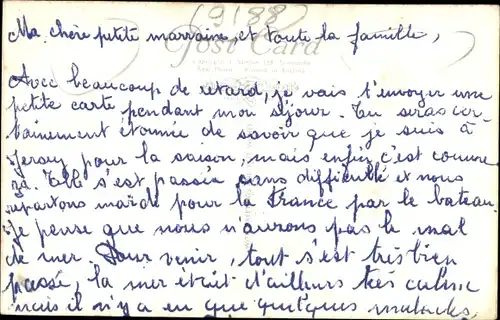 (9188)
Post Card
Ma chère petite marraine, et toute la famille,
Avec beaucoup de retard, je vais t'envoyer une
petite carte pendant mon séjour. Tu seras cer-
tainement étonnée de savoir que je suis à
Jersey pour la saison, mais enfin c'est comme
ça. Elle s'est passée sans difficulté et nous
repartons mardi pour la France par le bateau
je pense que nous n'aurons pas le mal
de mer. Pour venir, tout s'est très bien
passé, la mer était d'ailleurs très calme
mais il n'y a eu que quelques malades,